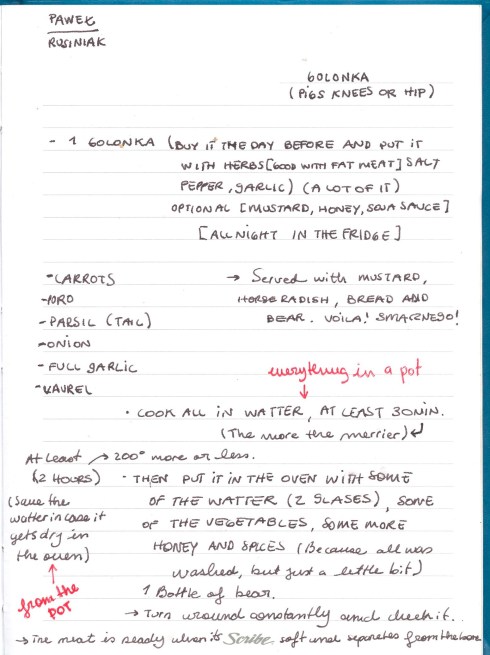 PAWEŁ
RUSINIAK
GOLONKA
(PIGS KNEES OR HIP)
- 1 GOLONKA (BUY IT THE DAY BEFORE AND PUT IT
WITH HERBS [GOOD WITH FAT MEAT] SALT
PEPPER, GARLIC) (A LOT OF IT)
OPTIONAL [MUSTARD, HONEY, SOJA SAUCE]
[ALL NIGHT IN THE FRIDGE]
- CARROTS
- PORO
- PARSIL (TAIL)
- ONION
- FULL GARLIC
- LAUREL
→ Served with MUSTARD,
HORSE RADISH, BREAD AND
BEAR. VOILA! SMACZNEGO!
everything in a pot
• COOK ALL IN WATTER, AT LEAST 30MIN.
(The more the merrier)
At least → 200° more or less.
(2 HOURS)
• THEN PUT IT IN THE OVEN WITH SOME
OF THE WATTER (2 GLASES), SOME
OF THE VEGETABLES, SOME MORE
HONEY AND SPICES (Because all was
washed, but just a little bit)
(Save the
watter in case it
gets dry in
the oven)
from the
POT
1 Bottle of bear.
→ Turn around constantly and check it.
→ The meat is ready when its Scribe soft and separates from the bone